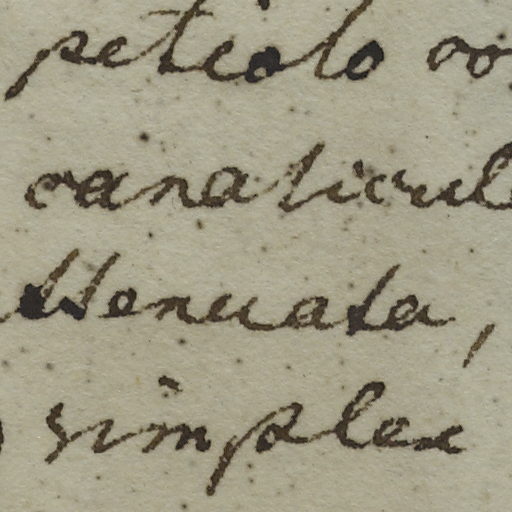 petiolo
canalicul
ttenuata,
simplex